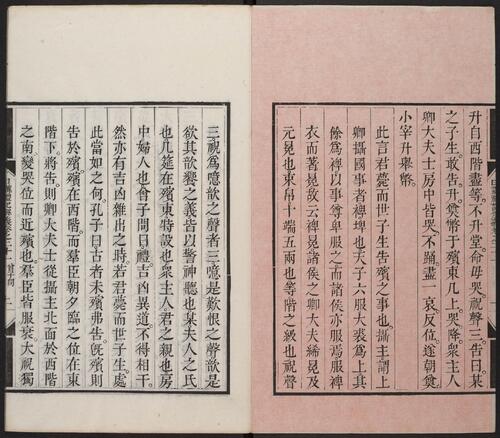 升自西階盡等。不升堂。命毋哭。祝聲三。告曰。某
之子生。敢告。升。奠幣于殯東几上。哭降。衆主人
卿大夫士房中皆哭。不踊。盡一哀。反位。遂朝奠。
小宰升舉幣。
此言君薨而世子生告殯之事也。攝主謂上
卿攝國事者裨埤也天子六服大裘爲上其
餘爲裨以事尊卑服之而諸侯亦服焉服裨
衣而著冕故云裨冕諸侯之卿大夫絺冕及
元冕也束帛十端五兩也等階之級也祝聲
三視爲噫歆之聲者三噫是歎恨之聲歆是
欲其歆饗之義皆以警神聽也某夫人之氏
也几筵在殯東特設也衆主人君之親也房
中婦人也曾子問曰。禮吉凶異道。不得相干。
然亦有吉凶雜出之時。若君薨而世子生。處
此當如之何。孔子曰古者未殯弗告。旣殯則
告於殯。殯在西階。而羣臣朝夕臨之位在東
階下。將告。則卿大夫士從攝主北面於西階
之南。變哭位而近殯也。羣臣皆服衰。大祝獨